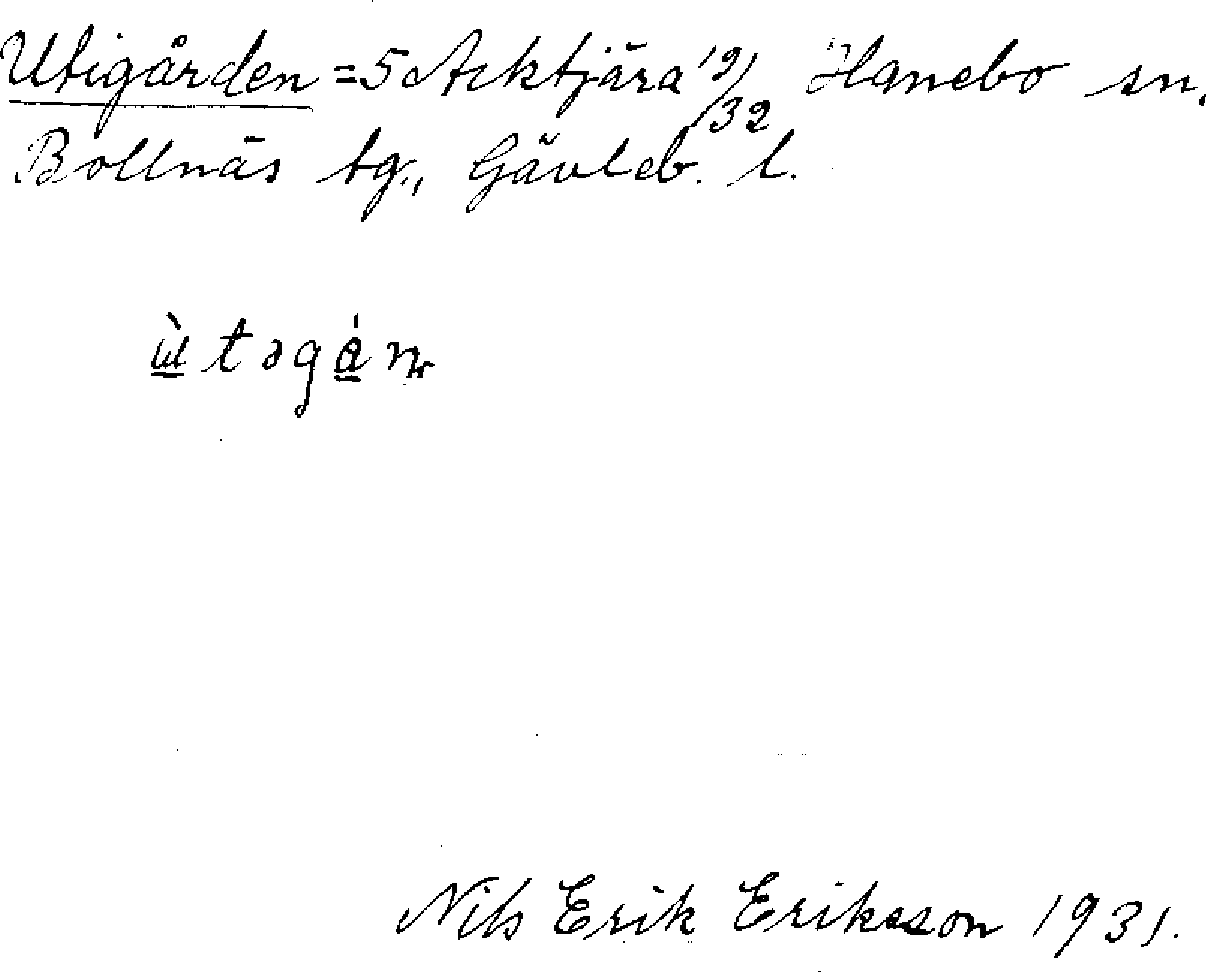 Utigården = 5 Acktjära 19/32 Hanebo sn.
Bollnäs tg., Gävleb. l.
ù̱təgá̱ɳ
Nils Erik Eriksson 1931.